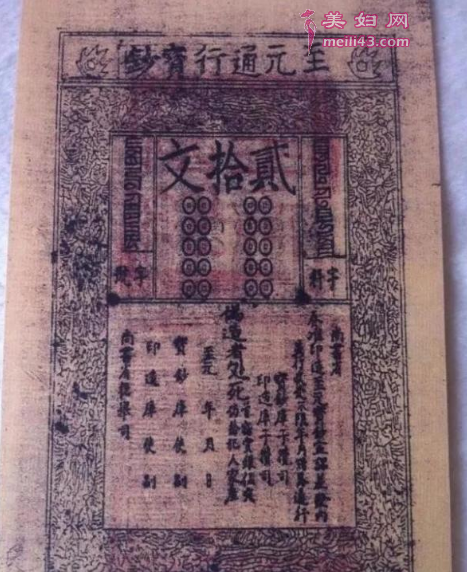 美妇网
meili43.com
至元通行寶鈔
貳拾文
字料
字號
尚書省
奏准印造至元寶鈔宣課差發內
並行收受不限年月諸路通行
寶鈔庫子攢司
印造庫子攢司
偽造者處死
仍給犯人家產
至元 年 月 日
寶鈔庫使副
印造庫使副
尚書省提舉司